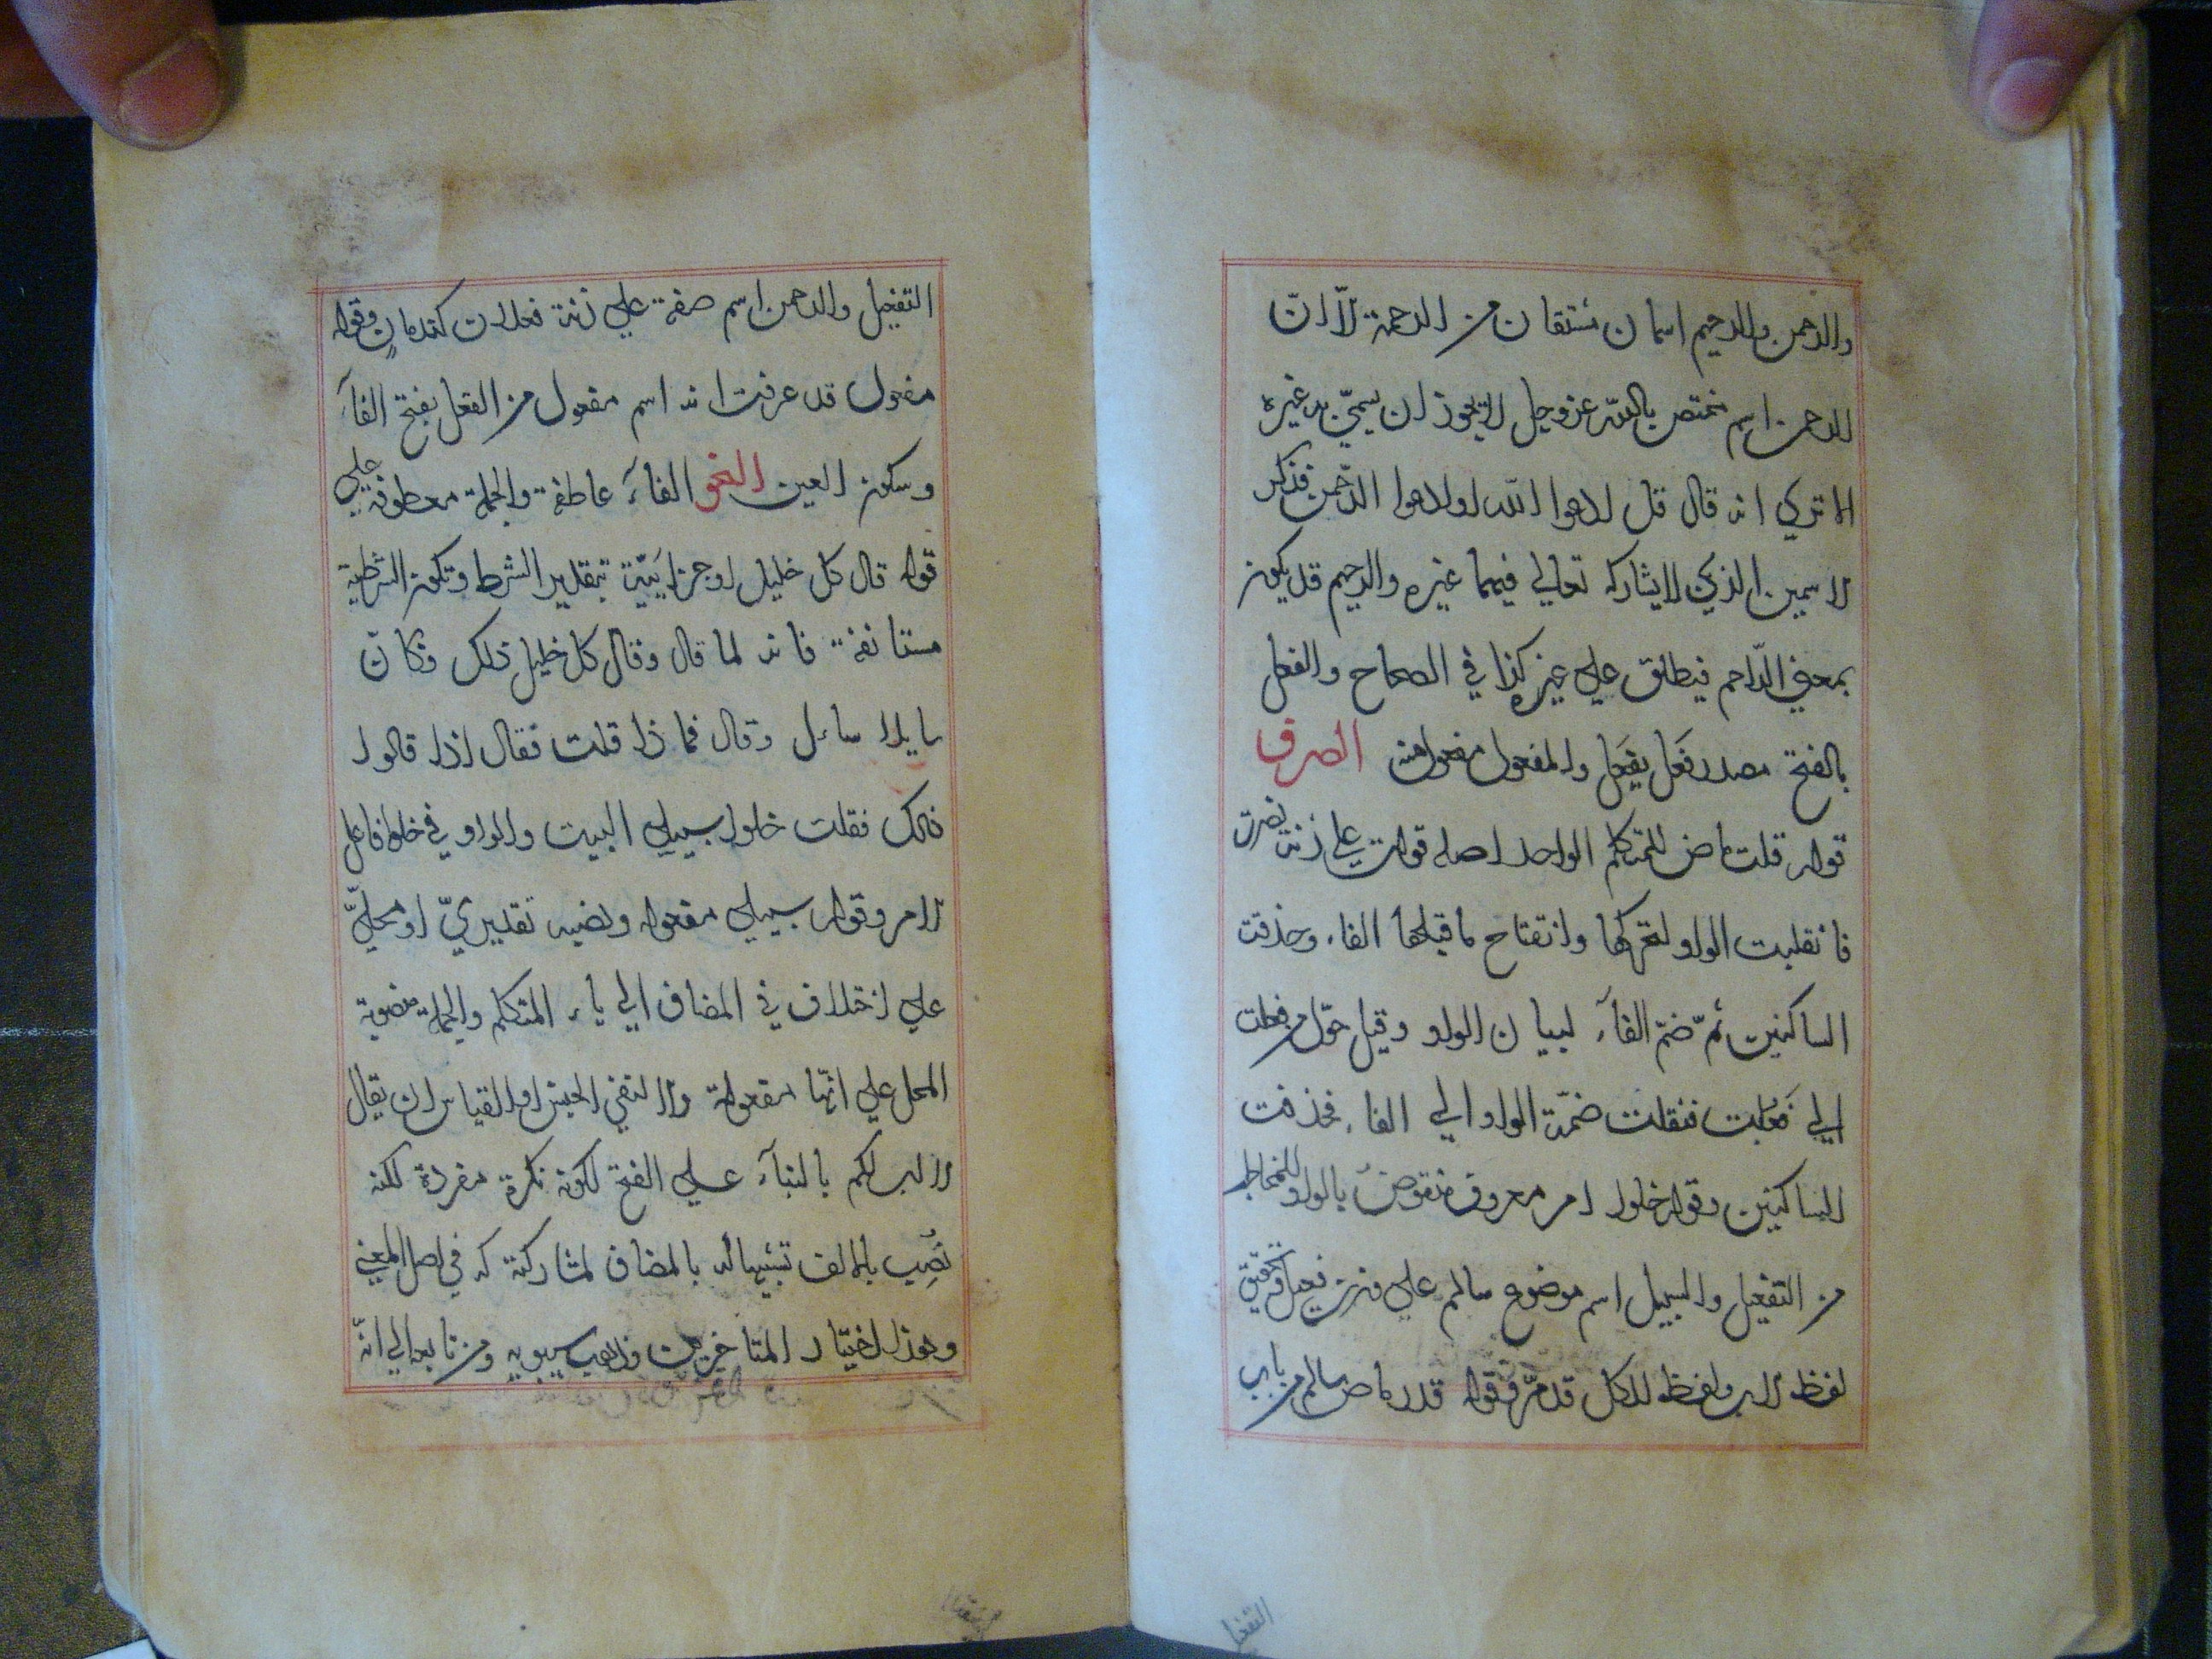 والرحمن والرحيم اسمان مشتقان من الرحمة الّا انّ
الرحمن اسم مختص بالله عز وجل لا يجوز ان يسمّي به غيره
الا تري انه قال قل ادعوا الله او ادعوا الرّحمن فذكر
الاسمين الذي لا يشاركه تعالي فيهما غيره والرحيم قد يكون
بمعني الرّاحم فيطلق علي غيره كذا في الصحاح والفعل
بالفتح مصدر فَعَل يفعَل والمفعول مفعول منه الصرف
قوله قلت ماض للمتكلم الواحد اصله قولت علي زنة نصرت
فانقلبت الواو لتحركها وانفتاح ما قبلها الفا وحذفت
الساكنين ثمّ ضمّ الفآء لبيان الواو وقيل حوّل من فعلت
الي فَعُلت فنقلت ضمّة الواو الي الفاء فحذفت
الساكنين وقوله خلوا امر معروف منقوص بالواو للمخاطبـ
من التفعيل والسبيل اسم موضوع سالم علي وزن فعيل وتحقيق
لفظ الاب ولفظ الكل قد مرّ وقوله قدر ماض سالم من باب
التفعيل والرحمن اسم صفة علي زنة فعلان كندمان وقوله
مفعول قد عرفت انه اسم مفعول من الفعل بفتح الفآء
وسكون العين النحو الفآء عاطفة والجملة معطوفة علي
قوله قال كل خليل او جزائيّة بتقدير الشرط وتكون الشرطية
مستانفة فانه لما قال وقال كل خليل ذلك فكانّ
سايلا سال وقال فماذا قلت فقال اذا قالوا
ذلك فقلت خلوا سبيلي البيت والواو في خلوا فاعل
الامر وقوله سبيلي مفعوله ونصبه تقديريّ او محليّ
علي اختلاف في المضاف الي ياء المتكلم والجملة منصوبة
المحل علي انّها مفعولة ولا لنفي الجنس او القياس ان يقال
لا اب لكم بالبنآء علي الفتح لكونه نكرة مفردة لكنه
نُصِب بالالف تشبيها له بالمضاف لمشاركته له في اصل المعني
وهذا اختيار المتاخرين وذهب سيبويه ومن تابعه الي انّه
التفعيل